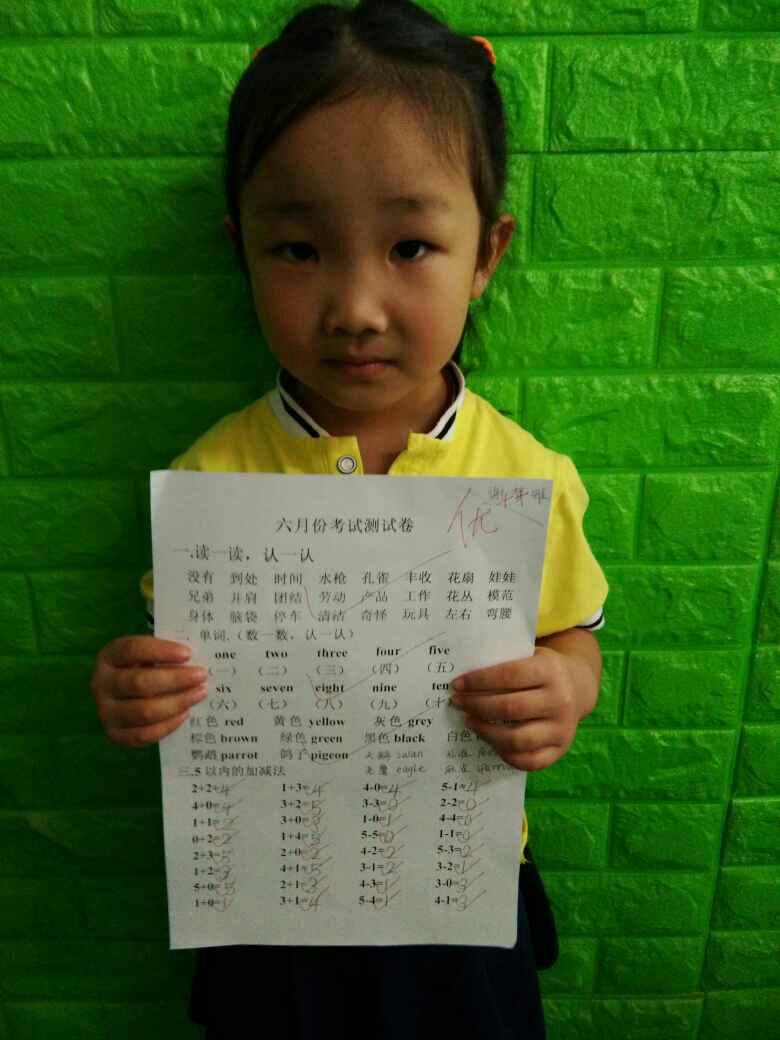 优
六月份考试测试卷
一.读一读，认一认
没有 到处 时间 水枪 孔雀 丰收 花扇 娃娃
兄弟 并肩 团结 劳动 产品 工作 花丛 模范
身体 脑袋 停车 清洁 奇怪 玩具 左右 弯腰
二．单词.（数一数，认一认）
one two three four five
（一）（二）（三）（四）（五）
six seven eight nine ten
（六）（七）（八）（九）（十
红色 red 黄色 yellow 灰色 grey
棕色 brown 绿色 green 黑色 black 白色
鹦鹉 parrot 鸽子 pigeon 天鹅 swan
三.5 以内的加减法 老鹰 eagle
2+2=4 1+3=4 4-0=4 5-1=4
4+0=4 3+2=5 3-3=0 2-2=0
1+1=2 3+0=3 1-0=1 4-4=0
0+2=2 1+4=5 5-5=0 1-1=0
2+3=5 2+0=2 4-2=2 5-3=2
1+2=3 4+1=5 3-1=2 3-2=1
5+0=5 2+1=3 4-3=1 3-0=3
1+0=1 3+1=4 5-4=1 4-1=3